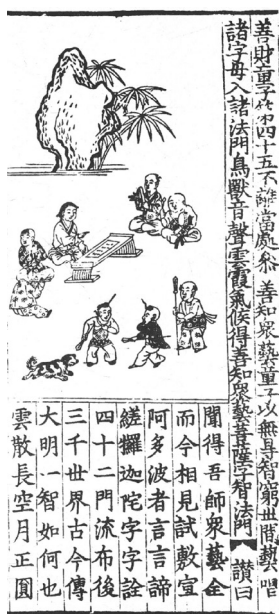 善財童子㐧四十五不離當處叅 善知衆藝童子以無㝵智窮世間藝唱
諸字母入諸法門鳥獸音聲雲霞氣候得善知衆藝菩薩字智法門 讚曰
聞得吾師衆藝全
而今相見試敷宣
阿多波者言言諦
縒攞迦陀字字詮
四十二門流布後
三千世界古今傳
大明一智如何也
雲散長空月正圓